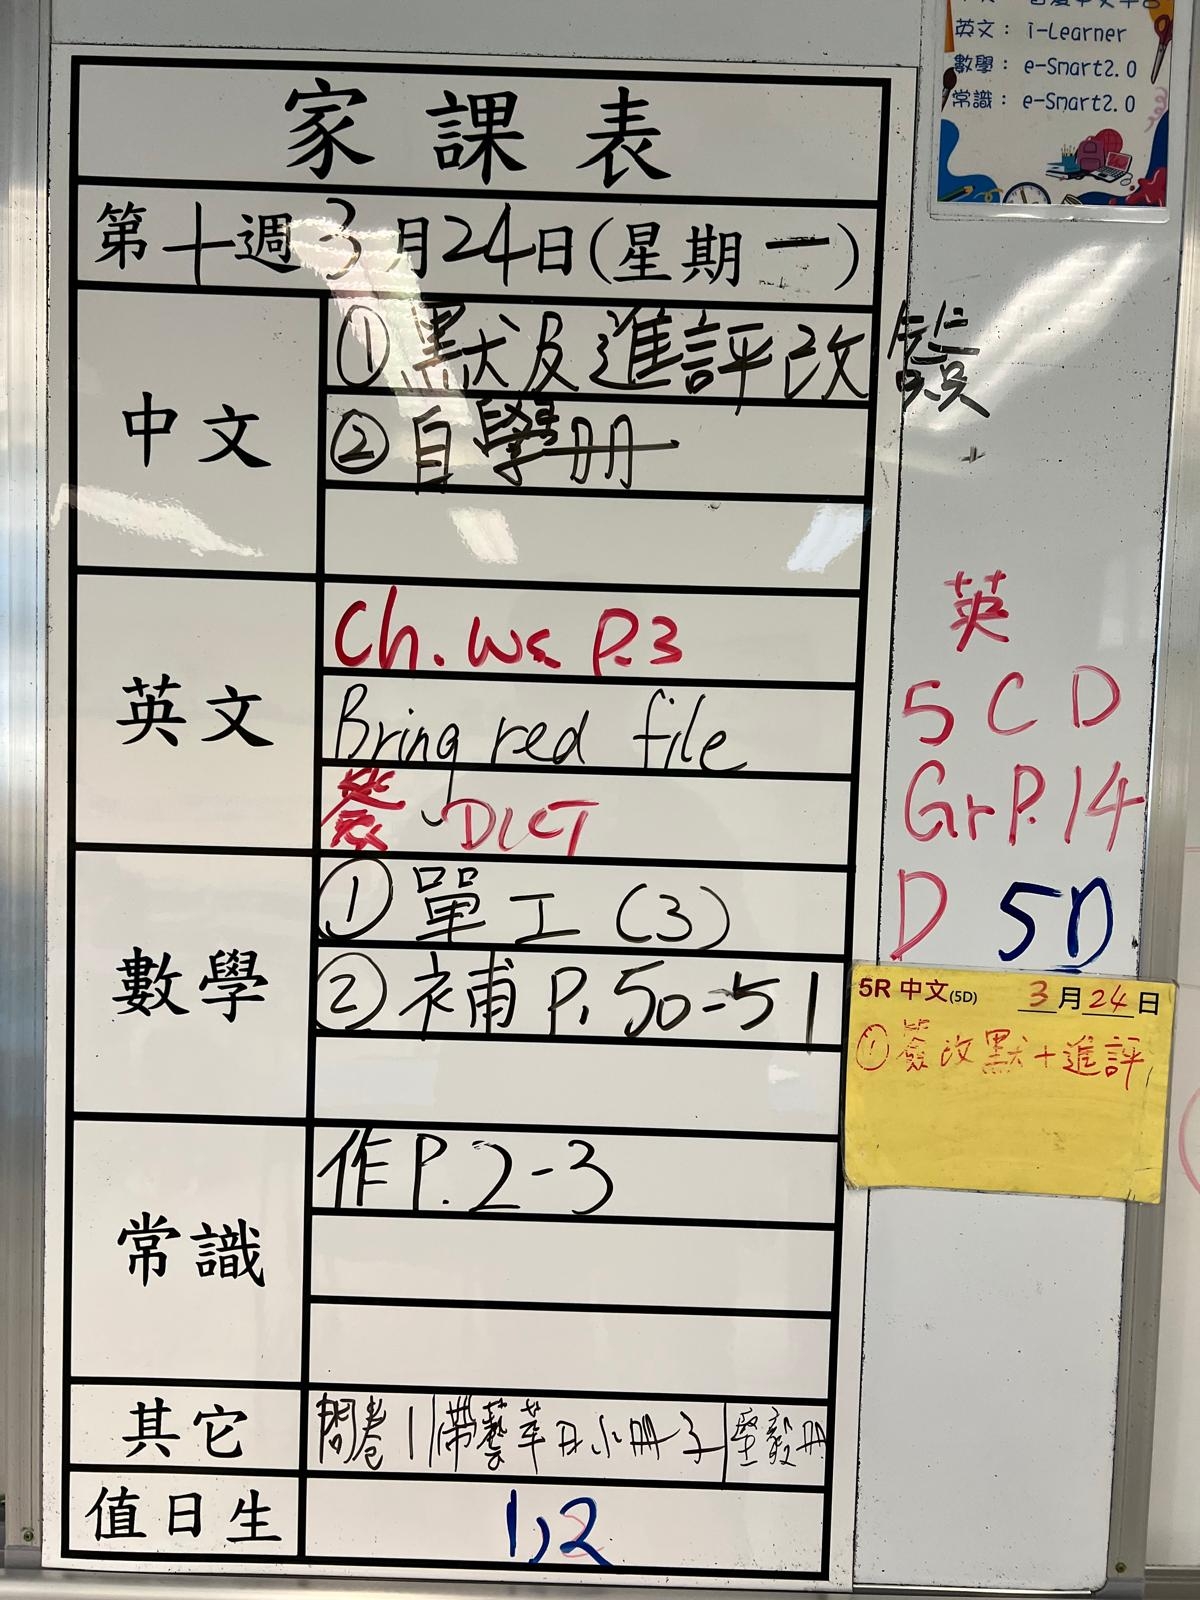 英文： i-Learner
數學： e-Smart2.0
常識： e-Smart2.0
家課表
第十週3月24日(星期一)
中文
①默及進評改簽
②自學册
英文
Ch. WS P.3
Bring red file
簽 DICT
數學
①單工(3)
②補P.50-51
常識
作P.2-3
其它
問卷1|帶藝萃日小冊子|堅毅冊
值日生
1,2
英
5CD
Gr P.14
D 5D
5R 中文(5D) 3月24日
①簽改默+進評